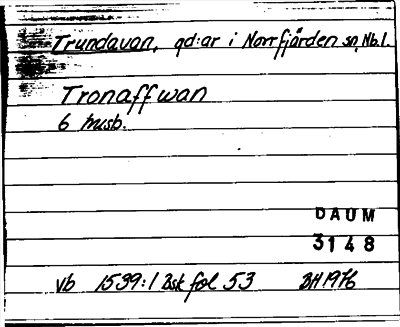 Trundavan, gd:ar i Norrfjärden sn, Nb.l.
Tronaffwan
6 husb.
DAUM
3148
vb 1539:1 Bsk fol 53 BH 1976